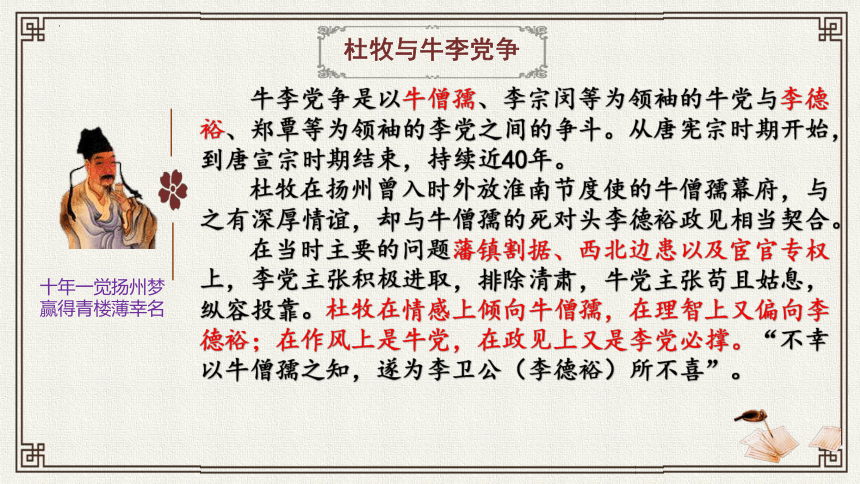 杜牧与牛李党争
牛李党争是以牛僧孺、李宗闵等为领袖的牛党与李德
裕、郑覃等为领袖的李党之间的争斗。从唐宪宗时期开始，
到唐宣宗时期结束，持续近40年。
杜牧在扬州曾入时外放淮南节度使的牛僧孺幕府，与
之有深厚情谊，却与牛僧孺的死对头李德裕政见相当契合。
在当时主要的问题藩镇割据、西北边患以及宦官专权
上，李党主张积极进取，排除清肃，牛党主张苟且姑息，
纵容投靠。杜牧在情感上倾向牛僧孺，在理智上又偏向李
德裕；在作风上是牛党，在政见上又是李党必撑。“不幸
以牛僧孺之知，遂为李卫公（李德裕）所不喜”。
十年一觉扬州梦
赢得青楼薄幸名